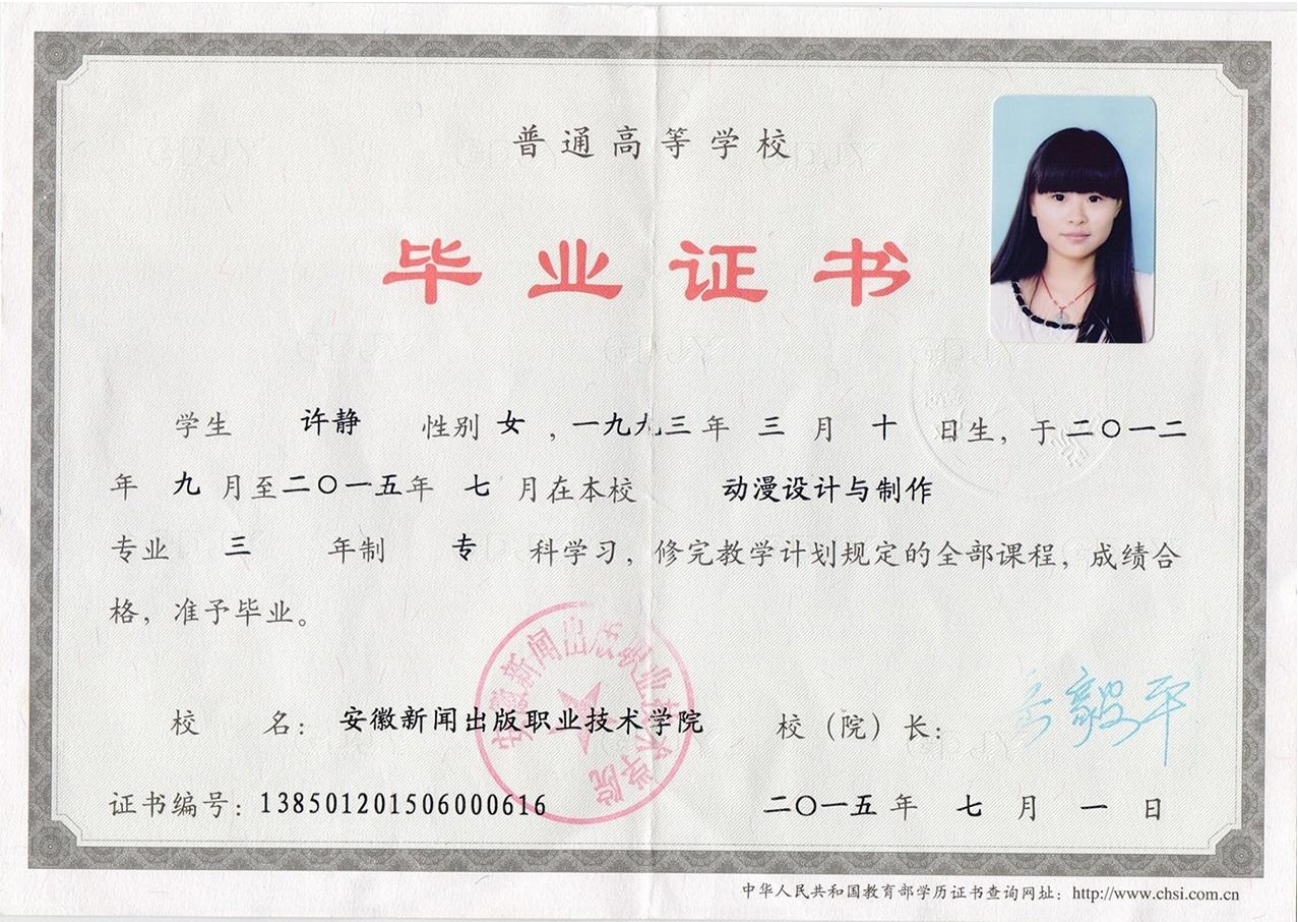 普通高等学校
毕业证书
学生 许静 性别 女 ，一九九三年 三 月 十 日生，于二〇一二
年 九 月至二〇一五年 七 月在本校 动漫设计与制作
专业 三 年制 专 科学习，修完教学计划规定的全部课程，成绩合
格，准予毕业。
安徽新闻出版职业技术学院
校 名：安徽新闻出版职业技术学院 校（院）长：
证书编号：138501201506000616 二〇一五年 七 月 一 日
中华人民共和国教育部学历证书查询网址：http://www.chsi.com.cn